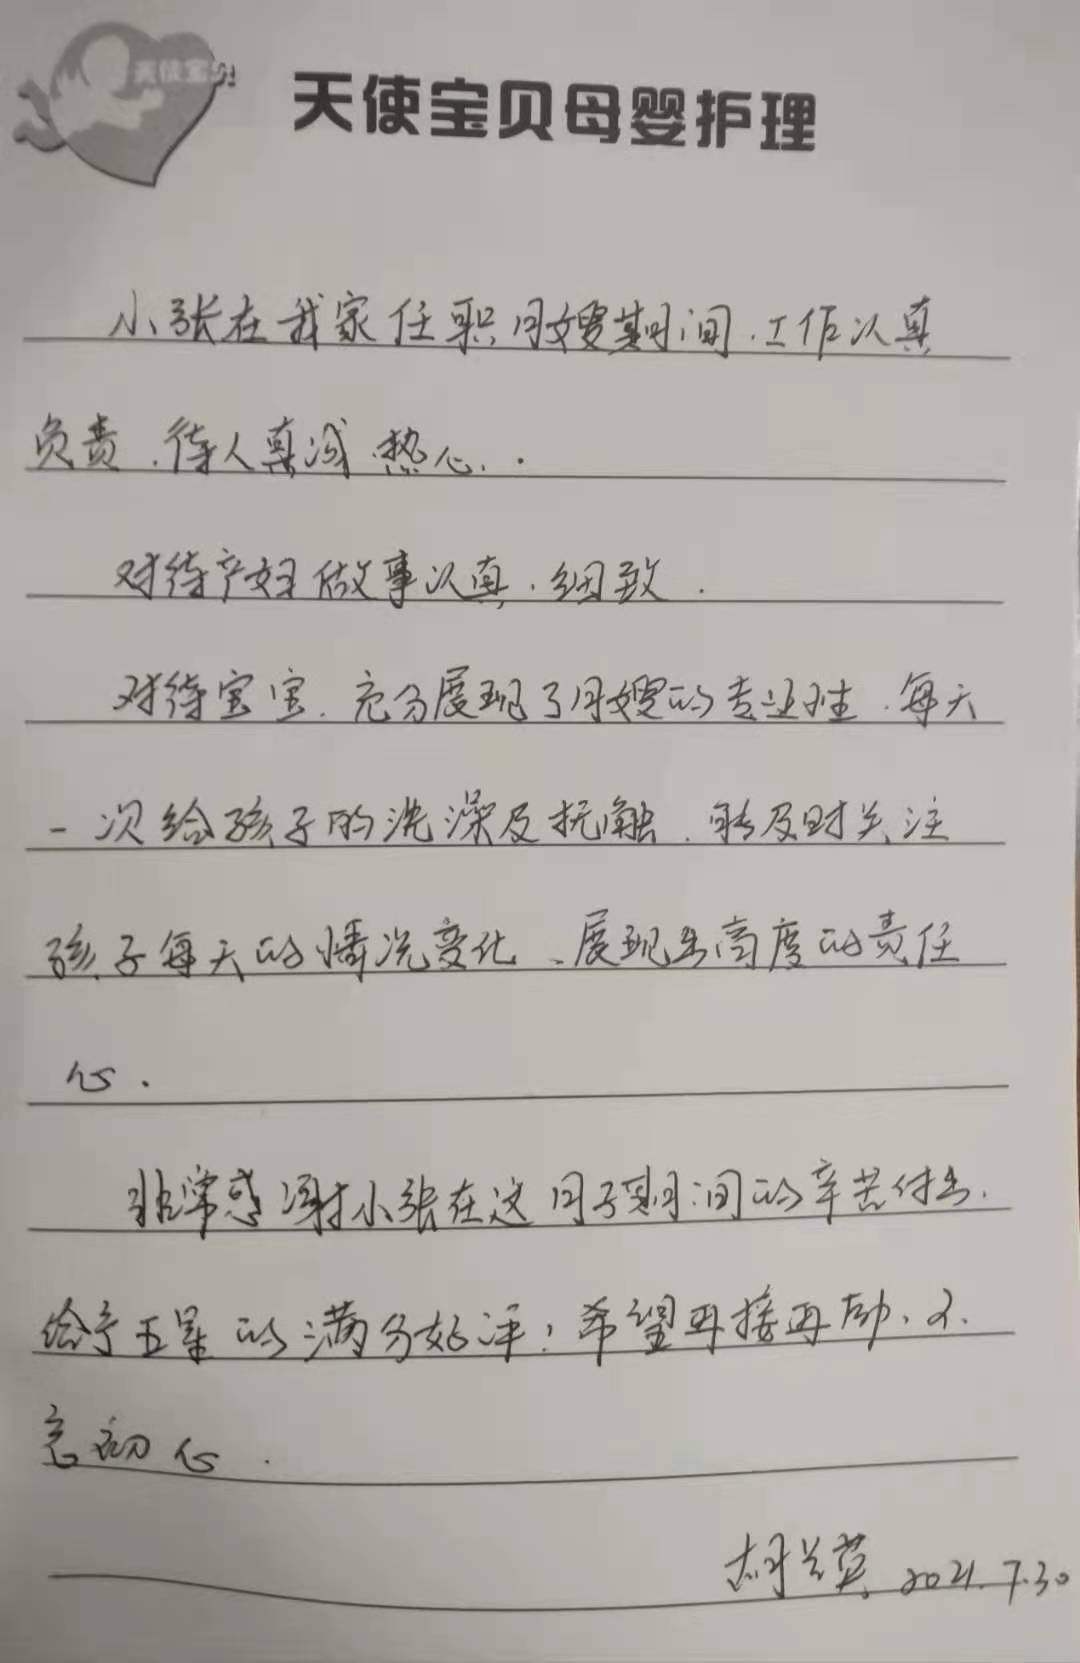 天使宝贝
天使宝贝母婴护理
小张在我家任职月嫂期间，工作认真
负责，待人真诚 热心．
对待产妇做事认真，细致．
对待宝宝，充分展现了月嫂的专业性，每天
一次给孩子的洗澡及抚触，能及时关注
孩子每天的情况变化、展现出高度的责任
心．
非常感谢小张在这月子期间的辛苦付出，
给予五星的满分好评，希望再接再励，不
忘初心．
胡兰英 2021.7.30